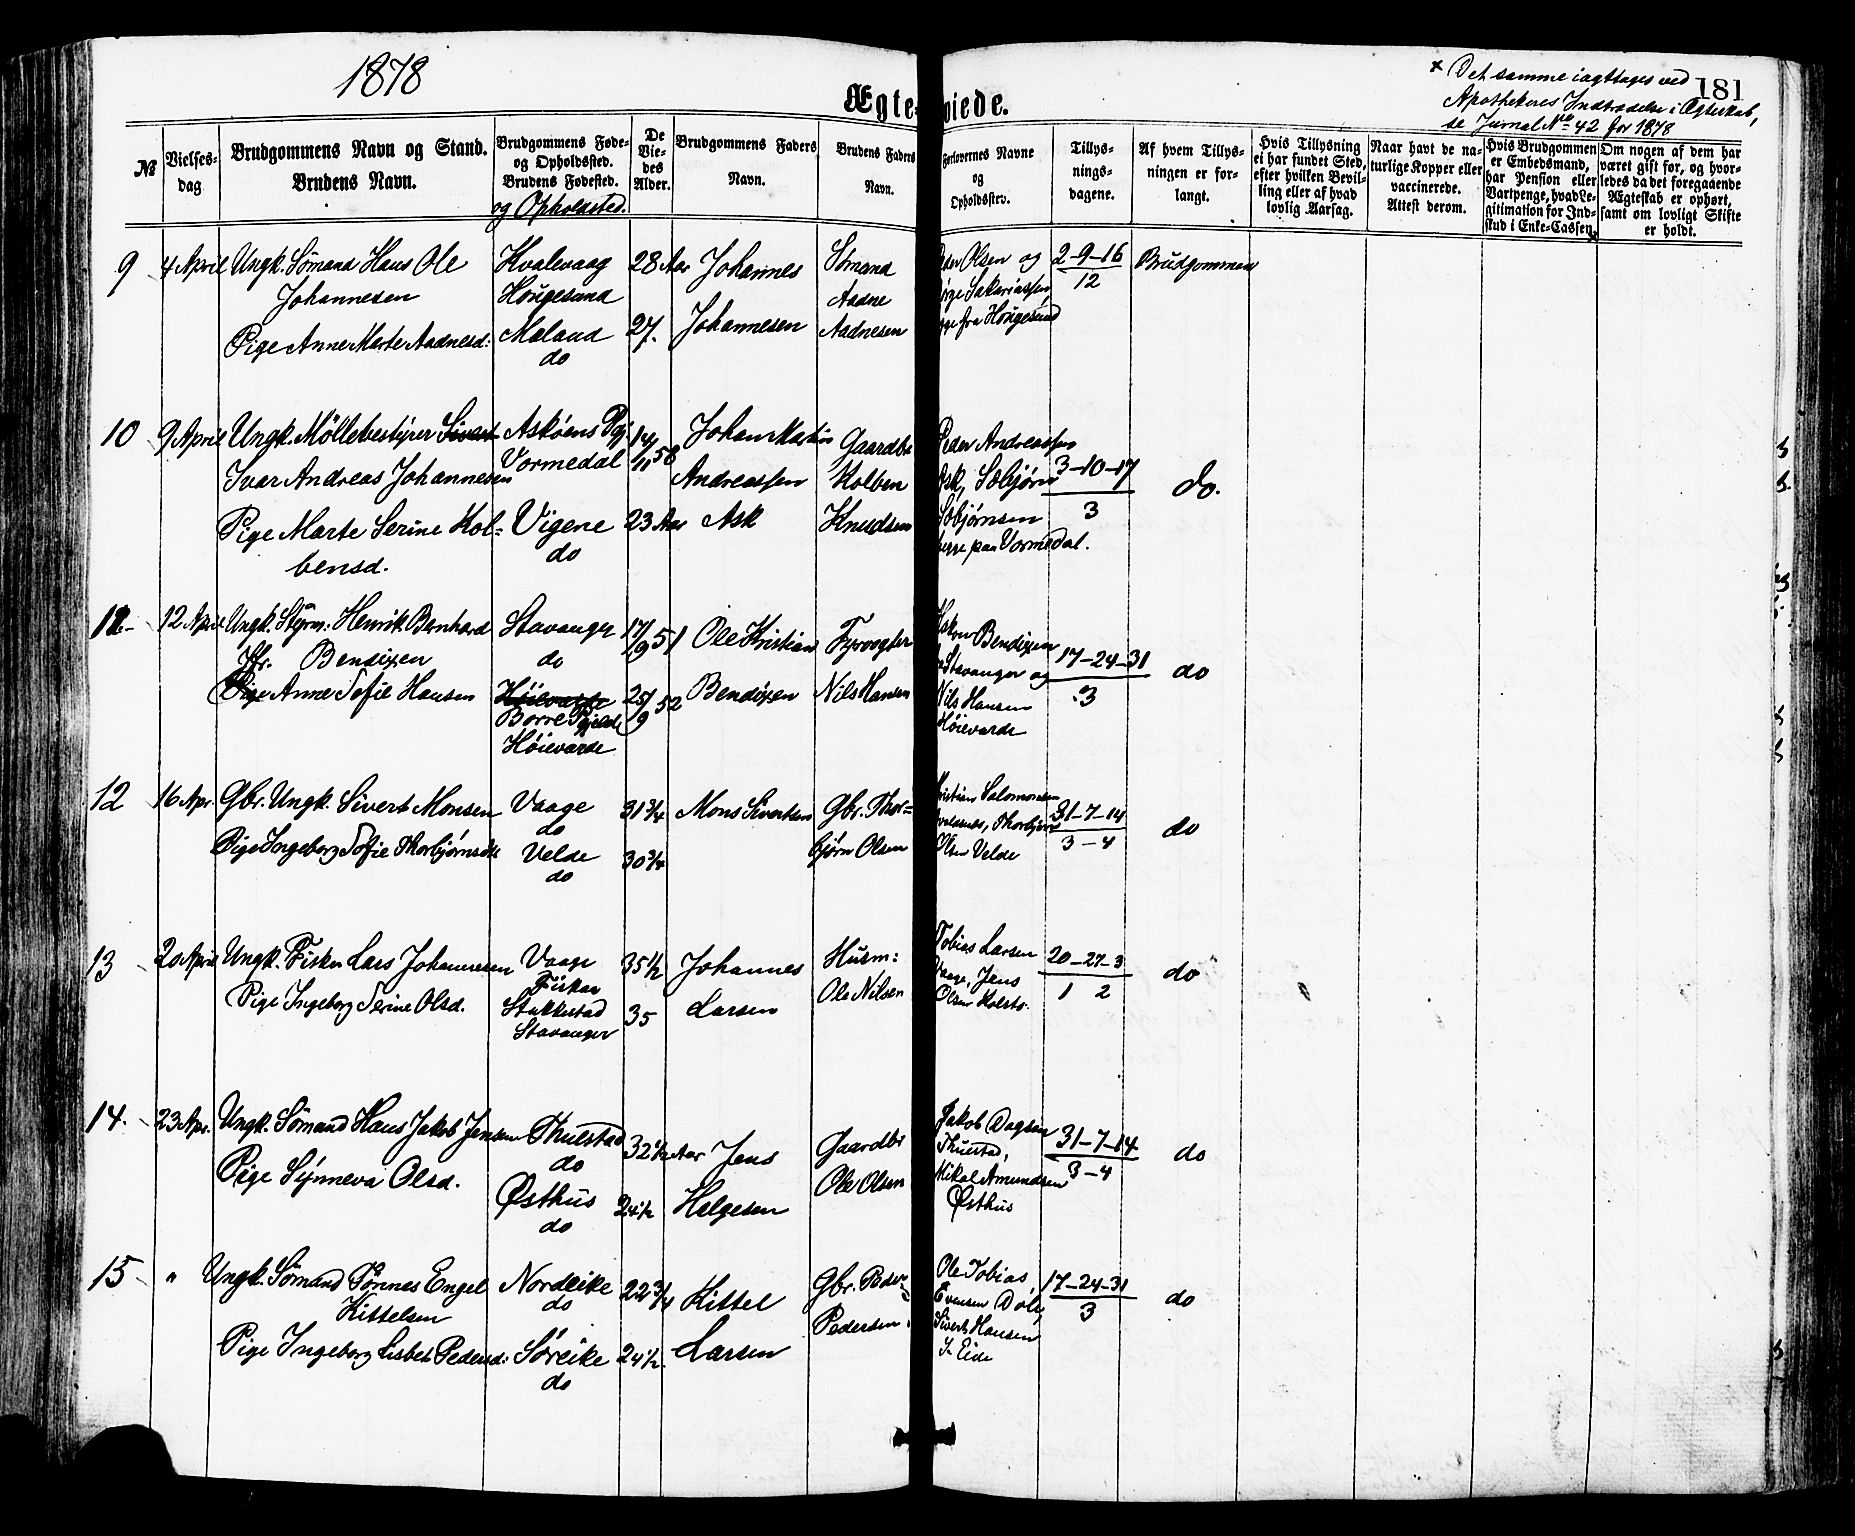 1878
Ægte-viede.
181
× Det samme iagttages ved
Apothekeres Indtrædelse i Ægteskab,
se Jurnal No 42 for 1878
№
Vielses-
dag.
Brudgommens Navn og Stand.
Brudens Navn.
Brudgommens Føde-
og Opholdssted.
Brudens Fødested.
og Opholdsted.
De
Vie-
des
Alder.
Brudgommens Faders
Navn.
Brudens Faders
Navn.
Forlovernes Navne
og
Opholdssted.
Tillys-
nings-
dagene.
Af hvem Tillys-
ningen er for-
langt.
Hvis Tillysning
ei har fundet Sted,
efter hvilken Bevil-
ling eller af hvad
lovlig Aarsag.
Naar havt de na-
turlige Kopper eller
vaccinerede.
Attest derom.
Hvis Brudgommen
er Embedsmand,
har Pension eller
Vartpenge, hvad Le-
gitimation for Ind-
skud i Enke-Cassen.
Om nogen af dem har
været gift før, og hvor-
ledes da det foregaaende
Ægteskab er ophørt,
samt om lovligt Skifte
er holdt.
9 4 April Ungk. Sömand Hans Ole
Johannesen
Pige Anne Marte Aadnesd:
Kvalevaag
Hougesund
Maland
do
28 Aar
27.
Johannes
Johannesen
Sömand
Aadne
Aadnesen
Olsen og
Sakariassen
fra Hougesund
2-9-16
12
Brudgommen
10 9 April Ungk. Möllebestyrer Sivert
Ivar Andreas Johannesen
Pige Marte Serine Kol-
bensd.
Askøens Pgj.
Vormedal
Vigene
do
14/11 58
23 Aar
Johan Martin
Andreassen
Ask
Gaardbr
Kolben
Knudsen
Peder Andreassen
Ask, Sæbjørn
Sæbjørnsen
paa Vormedal.
3-10-17
3
do.
11- 12 April Ungk. Styrm. Henrik Bernhard
Bendixen
Pige Anne Sofie Hansen
Stavanger
do
Høievarde
Borre Pgjeld
Høievarde
17/9 51
25/9 52
Ole Kristian
Bendixen
Fyrvogter
Nils Hansen
Bendixen
Stavanger og
Nils Hansen
Høievarde
17-24-31
3
do
12 16 Apr. Gbr. Ungk. Sivert Monsen
Pige Ingeborg Sofie Thorbjørnsdt
Vaage
do
Velde
do
31 3/4
30 3/4
Mons Sivertsen
Gbr. Thor=
bjørn Olsen
Kristian Salomonsen
Thorbjørn
Olsen Velde
31-7-14
3-4
do
13 20 April Ungk. Fisker Lars Johannesen
Pige Ingeborg Serine Olsd.
Vaage
Fiskaa
Stakkestad
Stavanger
35 1/2
35
Johannes
Larsen
Husm:
Ole Nilsen
Tobias Larsen
Vaage, Jens
Olsen Holstø.
20-27-3
1 2
do
14. 23 Apr. Ungk. Sömand Hans Jakob Jensen
Pige Synneva Olsd.
Thuestad
do
Østhus
do
32 1/2 Aar
24 1/2
Jens
Helgesen
Gaardbr
Ole Olsen
Jakob Dagsen
Thuestad,
Mikal Amundsen
Østhus
31-7-14
3-4
do
15 " Ungk. Sömand Tønnes Engel
Kittelsen
Pige Ingeborg Lisbet Pedersd:
Nordeike
do
Søreike
do
22 3/4
24 1/2.
Kittel
Larsen
Gbr. Peder
Pedersen
Ole Tobias
Evensen Døle,
Sivert Hansen
I. Eide
17-24-31
3
do